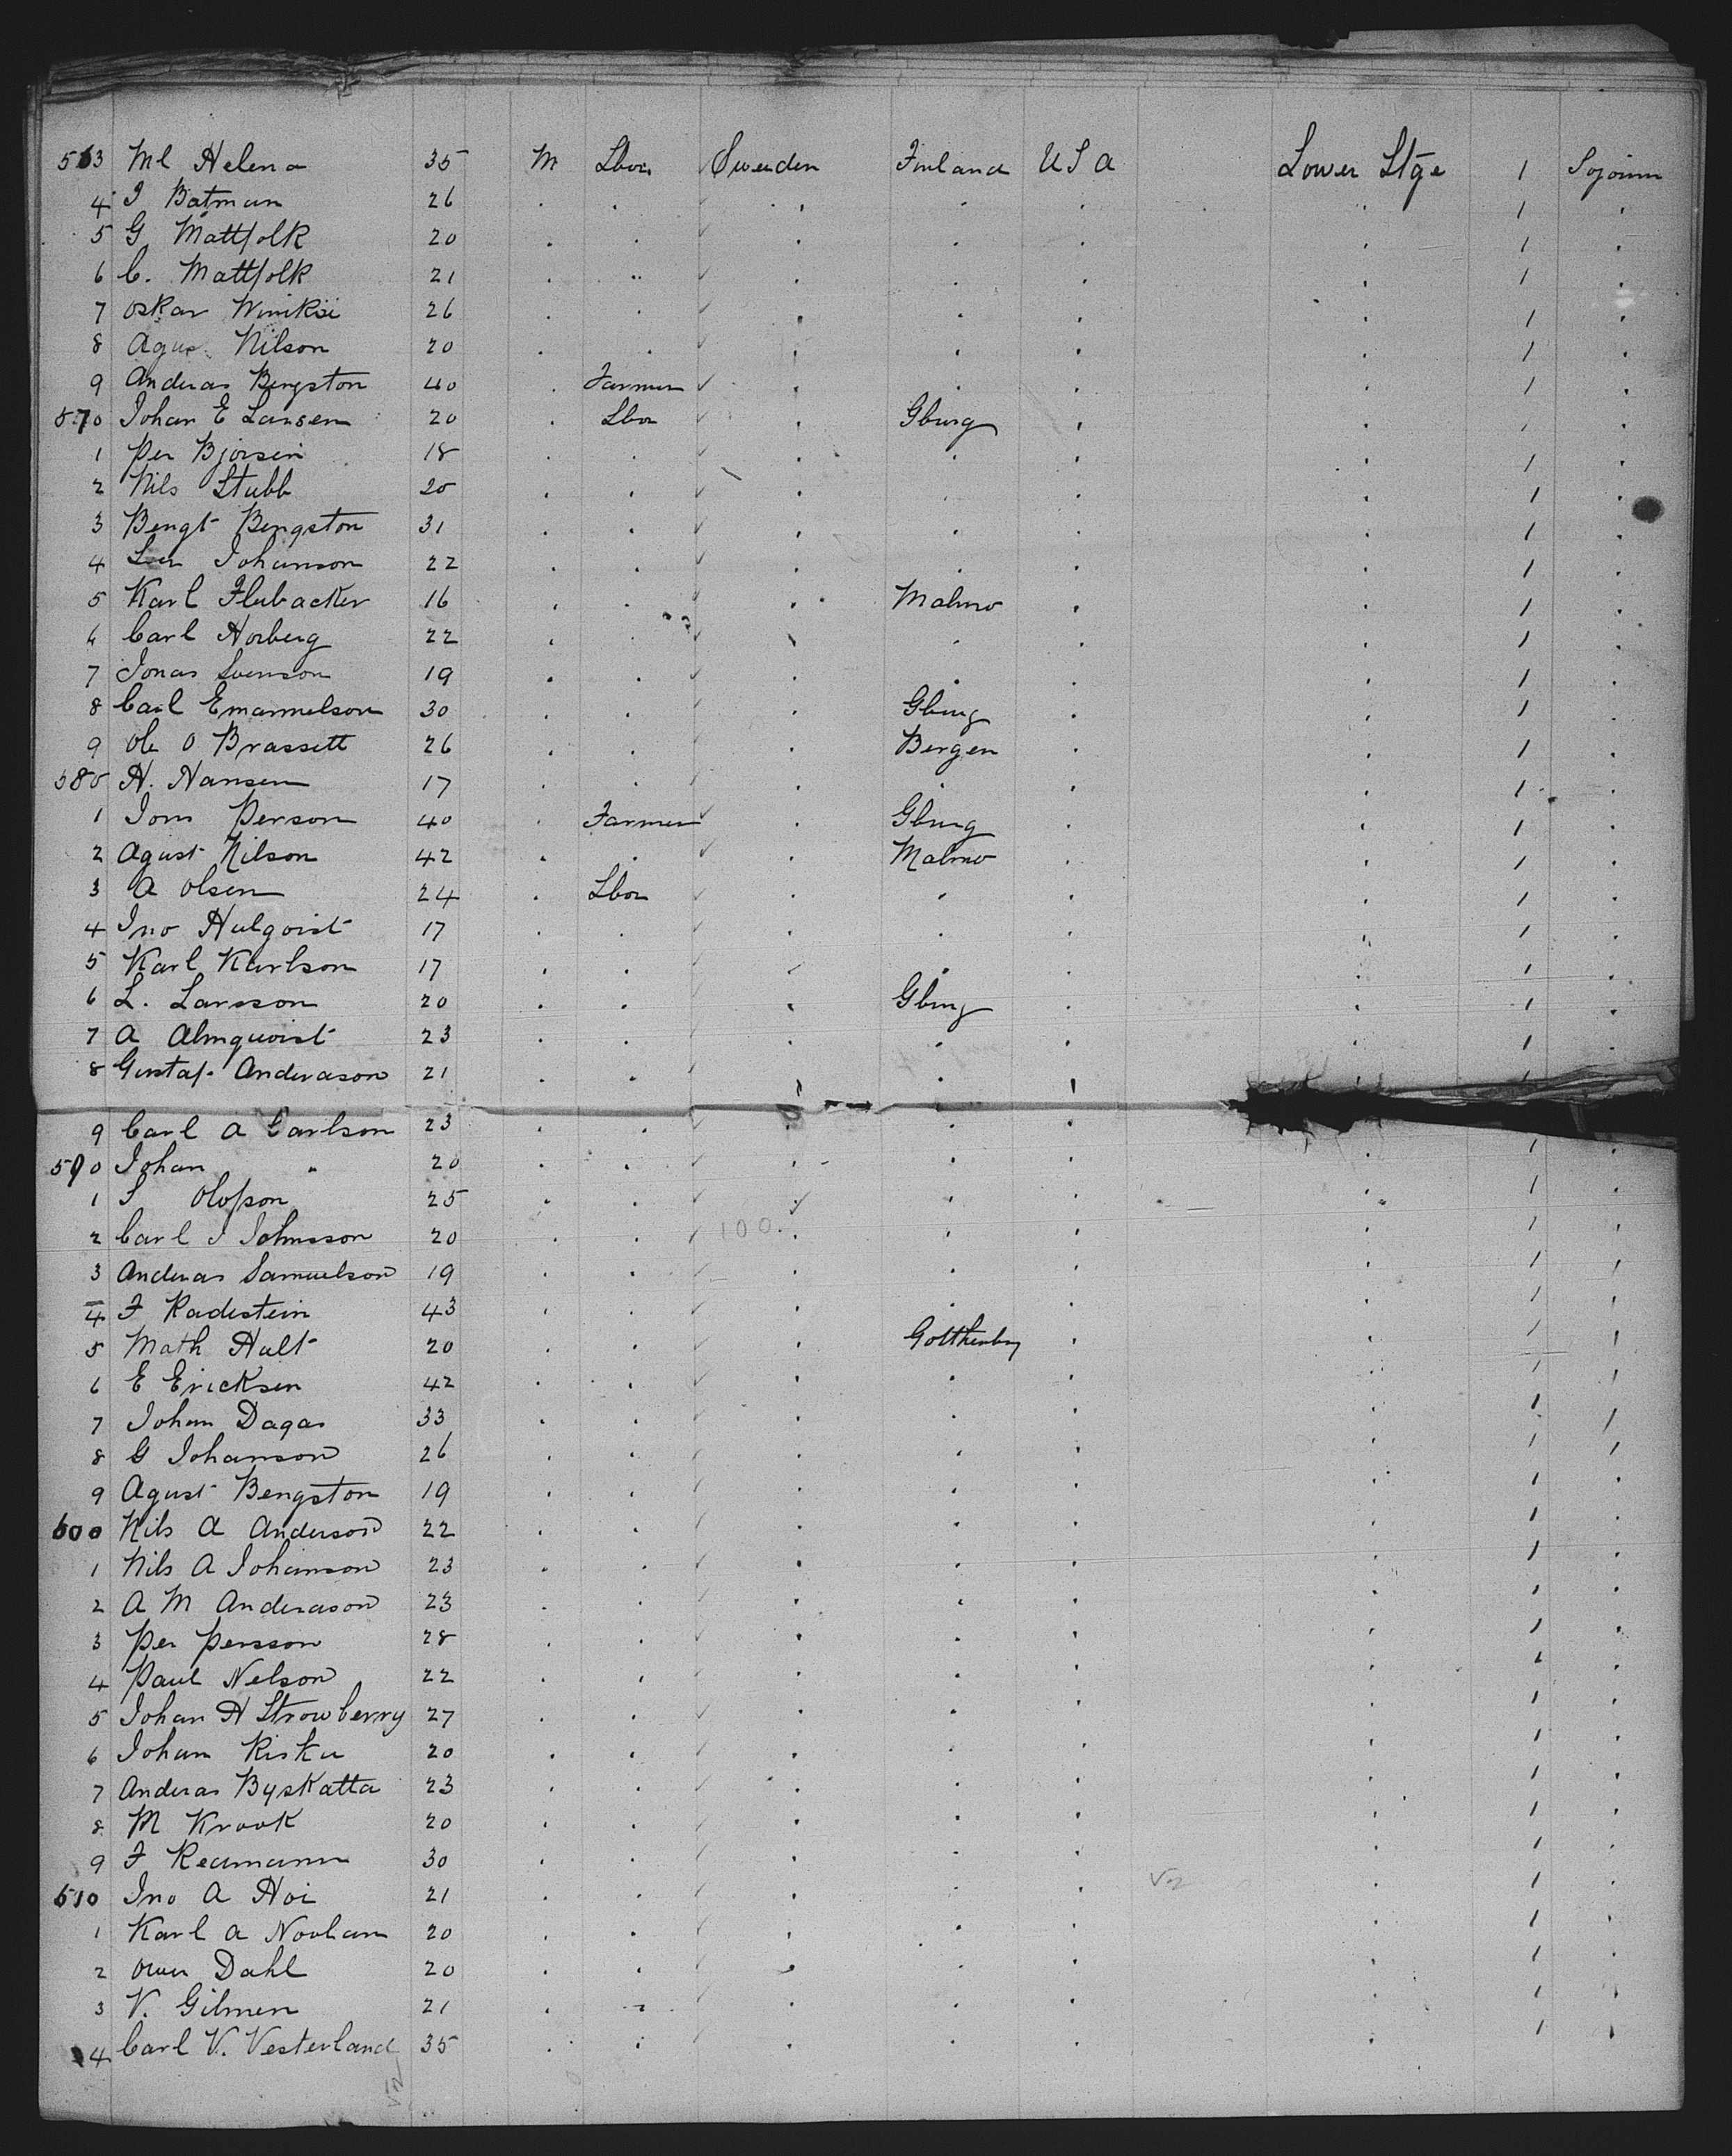 563 Ml Helena 35 M Lbor Sweeden Finland U S A Lower Stge 1 Sojourn
4 J Batman 26 . . . . . . 1 .
5 G Mattfolk 20 . . . . . . 1 .
6 C. Mattfolk 21 . " . . . . 1 .
7 Oskar 26 . . . . . . 1 .
8 Nilson 20 . . . . . . 1 .
9 Anderas Bengston 40 . Farmer . . . . 1 .
570 Johan E Larsen 20 . Lbor . Gburg . . 1 .
1 Per Bjorsen 18 . . . . . . 1 .
2 Nils Stubb 20 . . . . . . 1 .
3 Bengt Bengston 31 . . . . . . 1 .
4 Johanson 22 . . . . . . 1 .
5 Karl Flubacker 16 . . . Malmo . . 1 .
6 Carl Norberg 22 . . . . . . 1 .
7 Jonas Svenson 19 . . . . . . 1 .
8 Carl Emanuelson 30 . . . Gburg . . 1 .
9 Ole O Brassett 26 . . . Bergen . . 1 .
580 H. Hansen 17 . . . . . . 1 .
1 Jons Person 40 . Farmer . Gburg . . 1 .
2 Agust Nilson 42 . . . Malmo . . 1 .
3 A Olsen 24 . Lbor . . . . 1 .
4 Jno Hulqvist 17 . . . . . . 1 .
5 Karl Karlson 17 . . . . . . 1 .
6 L. Larsson 20 . . . Gburg . . 1 .
7 A Almquvist 23 . . . . . . 1 .
8 Gustaf Anderason 21 . . . . . . 1
9 Carl A Carlson 23 . . . . .
590 Johan " 20 . . . . . . 1 .
1 S Olofson 25 . . . . . . 1 .
2 Carl J Johnsson 20 . . 100 . . . . 1 .
3 Anderas Samuelson 19 . . . . . . 1 .
4 F Radestein 43 . . . . . . 1 .
5 Math Hult 20 . . . Gottherbg . . 1 .
6 E Ericksen 42 . . . . . . 1 .
7 Johan Dagas 33 . . . . . . 1 .
8 G Johanson 26 . . . . . . 1 .
9 Agust Bengston 19 . . . . . . 1 .
600 Nils A Anderson 22 . . . . . . 1 .
1 Nils A Johanson 23 . . . . . . 1 .
2 A M Anderason 23 . . . . . . 1 .
3 Per Persson 28 . . . . . . 1 .
4 Paul Nelson 22 . . . . . . 1 .
5 Johan A Strowberry 27 . . . . . . 1 .
6 Johan Riska 20 . . . . . . 1 .
7 Anderas Byskatta 23 . . . . . . 1 .
8 M Krook 20 . . . . . . 1 .
9 F Reamann 30 . . . . . . 1 .
610 Jno A Hoi 21 . . . . . . 1 .
1 Karl A 20 . . . . . . 1 .
2 Owen Dahl 20 . . . . . . 1 .
3 V. Gilmen 21 . . . . . . 1 .
4 Carl V. Vesterland 35 . . . . . . 1 .